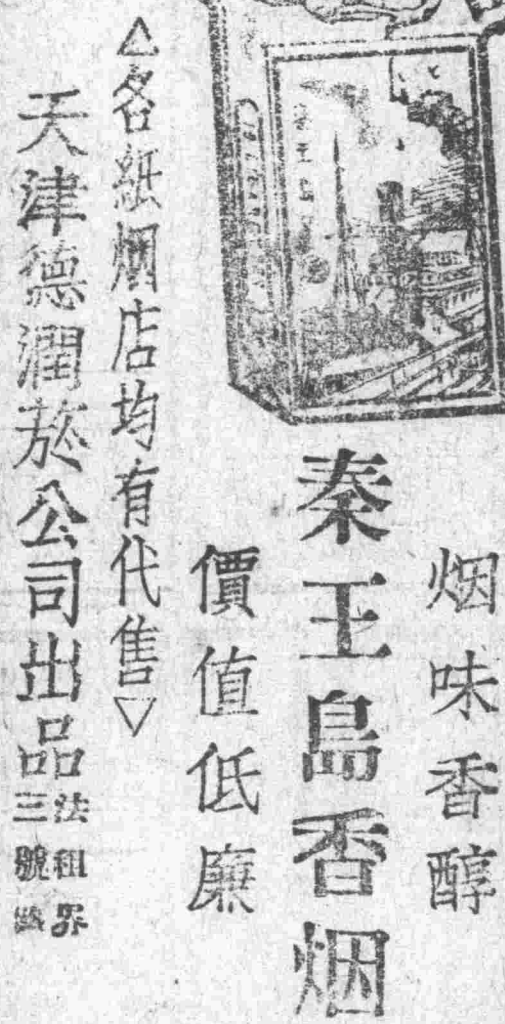 烟味香醇
秦王島香烟
價值低廉
△各紙烟店均有代售▽
天津德潤菸公司出品
法租界
三號路
秦王島